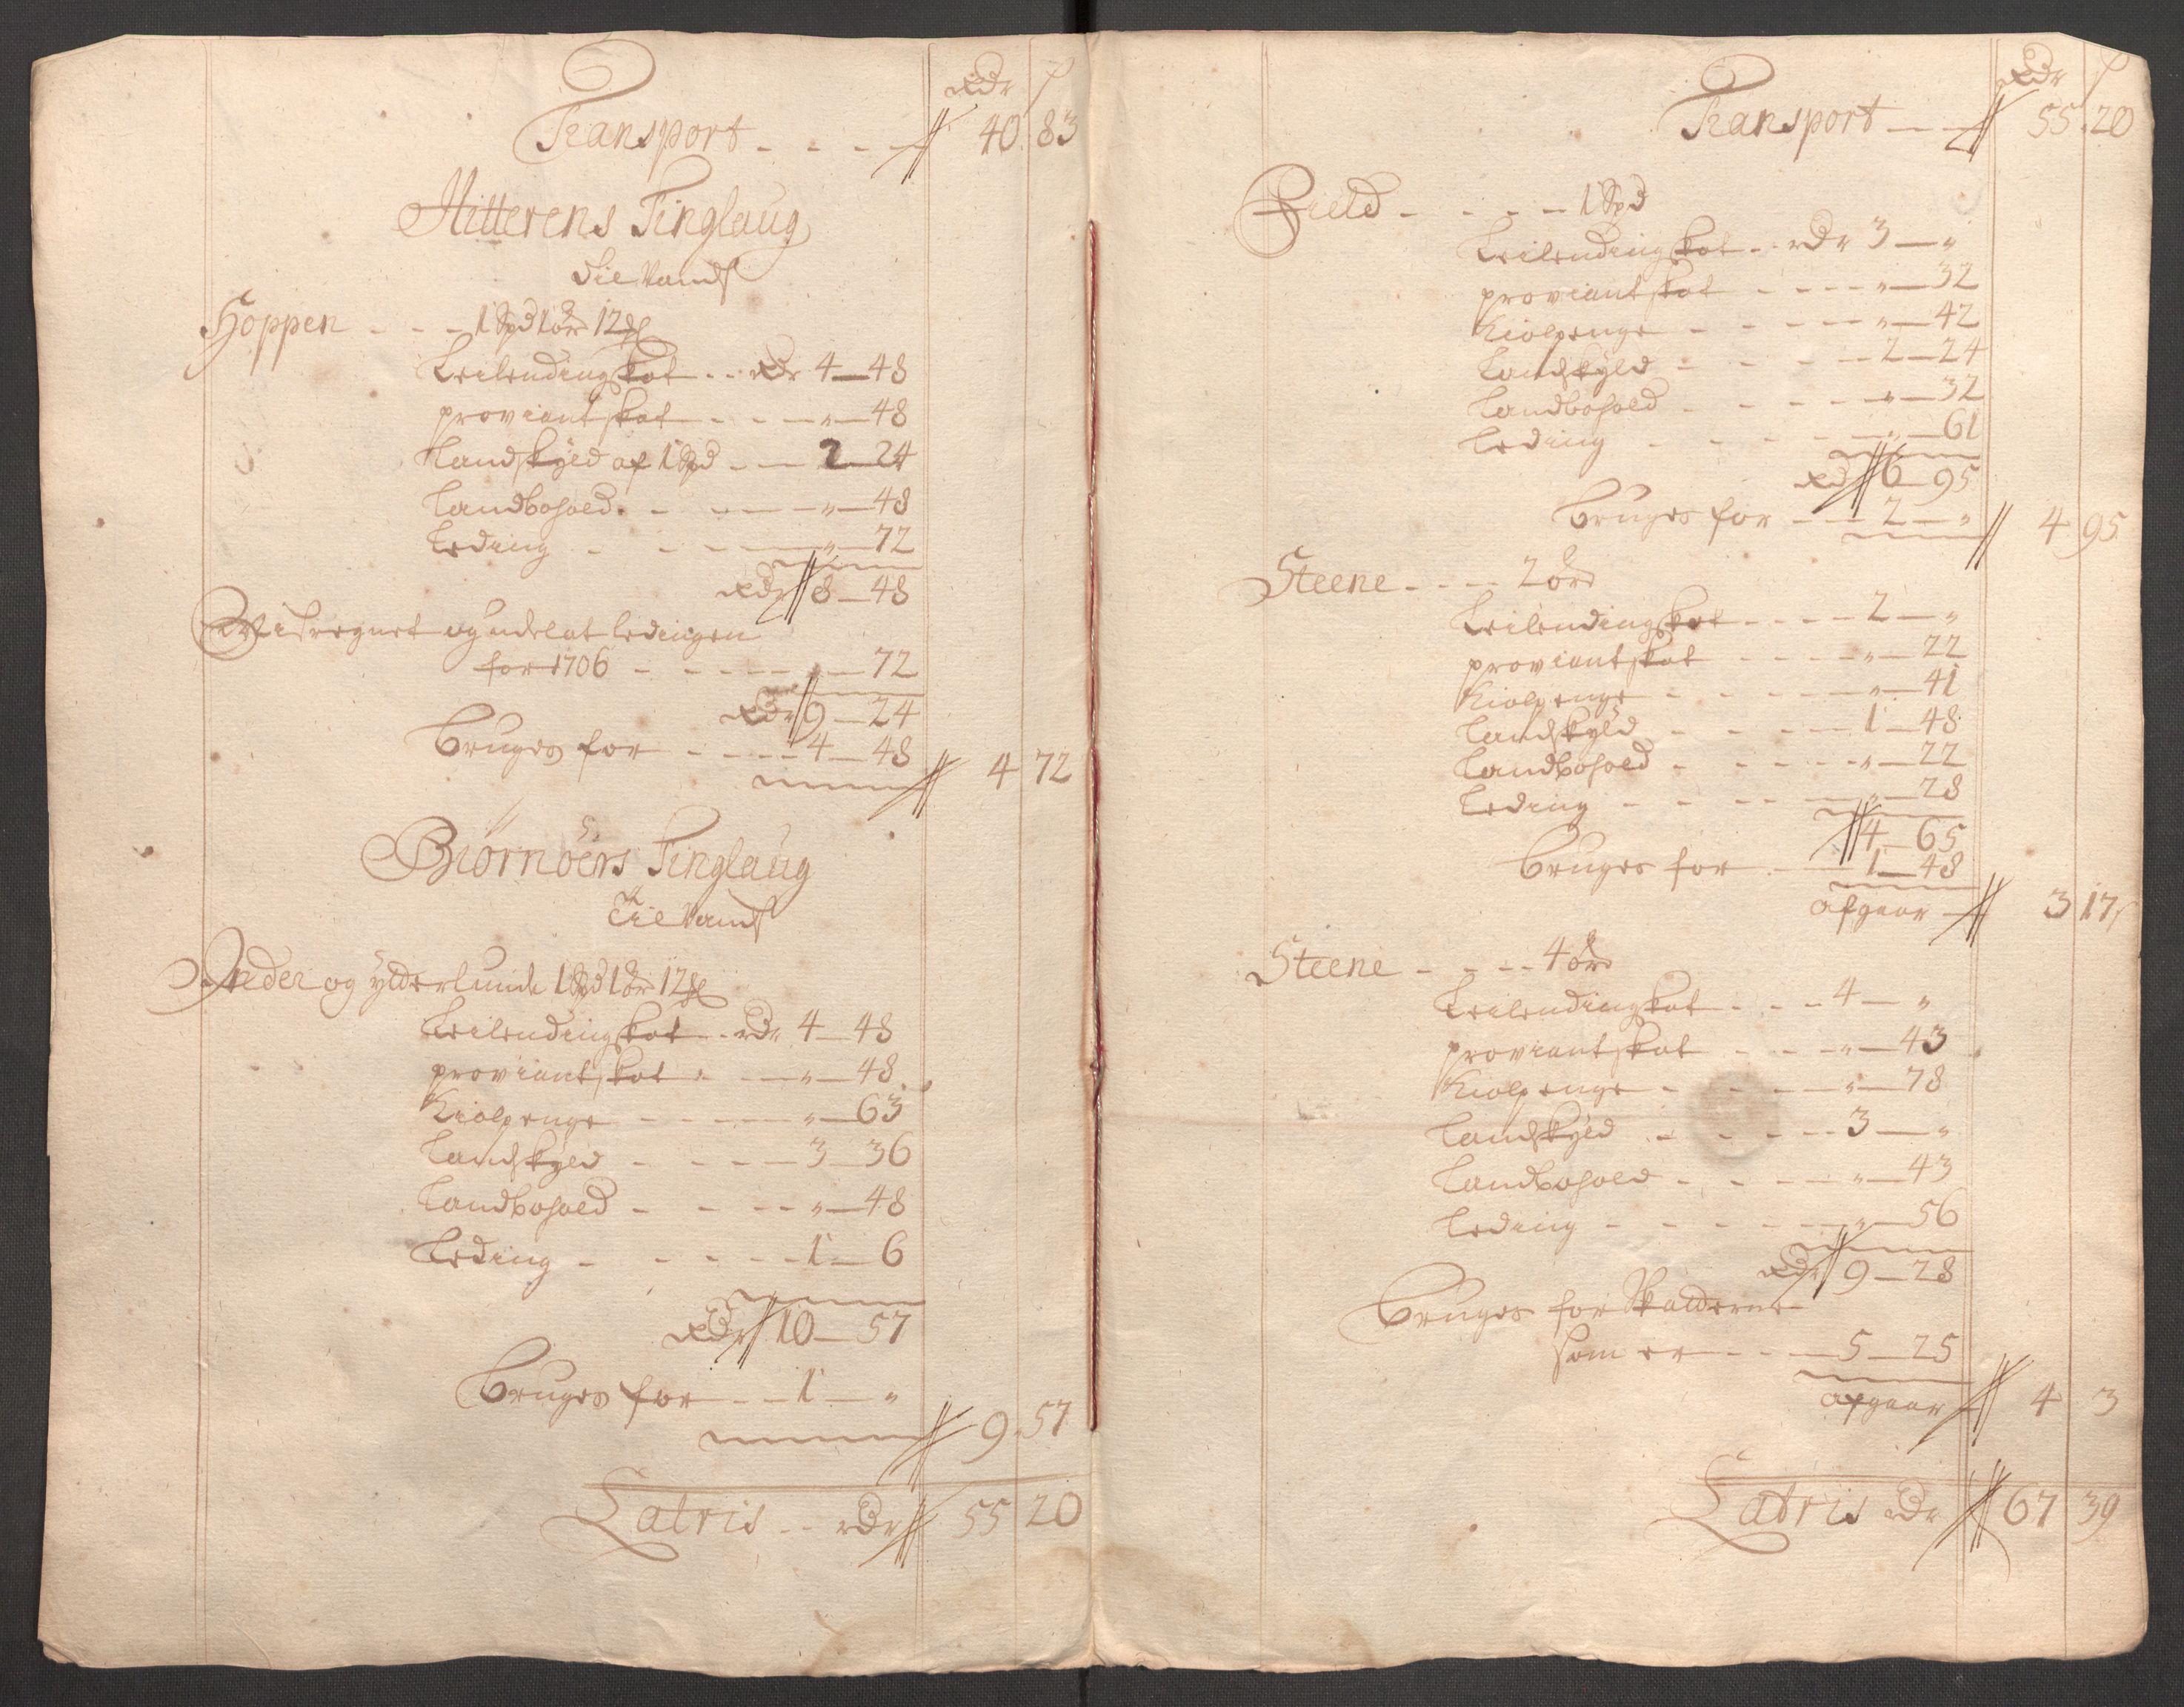 Rdr ß
Transport - - - 40 83
Hitterens Tinglaug
die Vands
Hoppen - - - 1 Spd 1 ör 12 ml
Leilending skat - - Rdr 4 — 48
proviant skat - - - „ — 48
Landskyld af 1 Spd - - 2 — 24
Landbohold - - - „ — 48
Leding - - - „ — 72
Rdr 8 — 48
og udelat ledingen
for 1706 - - - „ — 72
Rdr 9 — 24
bruges for - - - 4 — 48
4 72
Biörnöers Tinglaug
Vands
Neder og ytderlunde 1 Spd 1 ör 12 ml
Leilending skat - - rdr 4 — 48
proviant skat - - - „ — 48
Kiolpenge - - - „ — 63
Landskyld - - - 3 — 36
Landbohold - - - „ — 48
Leding - - - 1 — 6
Rdr 10 — 57
bruges for - - 1 — „
9 57
Latris - - rdr 55 20
Rdr ß
Transport - - 55 20
Field - - - 1 Spd
Leilending skat - - rdr 3 — „
proviant skat - - - „ — 32
Kiolpenge - - - „ — 42
Landskyld - - - 2 — 24
Landbohold - - - „ — 32
Leding - - - „ — 61
Rdr 6 — 95
bruges for - - 2 — „ 4 95
Steene - - - 2 ör
Leilending skat - - - 2 — „
proviant skat - - - „ — 22
Kiolpenge - - - „ — 41
Landskyld - - - 1 — 48
Landbohold - - - „ — 22
Leding - - - „ — 28
4 — 65
bruges for - - 1 — 48
afgaar - 3 17
Steene - - - 4 ör
Leilending skat - - - 4 — „
proviant skat - - - „ — 43
Kiolpenge - - - „ — 78
Landskyld - - - 3 — „
Landbohold - - - „ — 43
Leding - - - „ — 56
Rdr 9 — 28
bruges for Skatterne
som er - - - 5 — 25
afgaar 4 3
Latris rdr 67 39